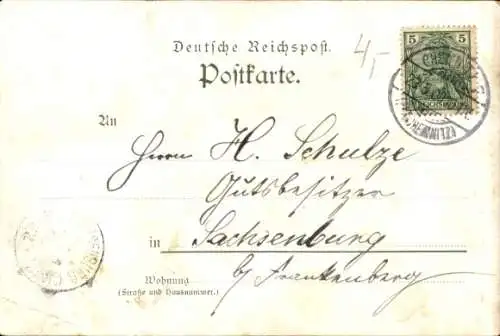 4,-
Deutsche Reichspost.
Postkarte.
5
5
(CHEMNITZ)
An
Herrn H. Schulze
Gutsbesitzer
in Sachsenburg
b/ Frankenberg
Wohnung
(Straße und Hausnummer.)